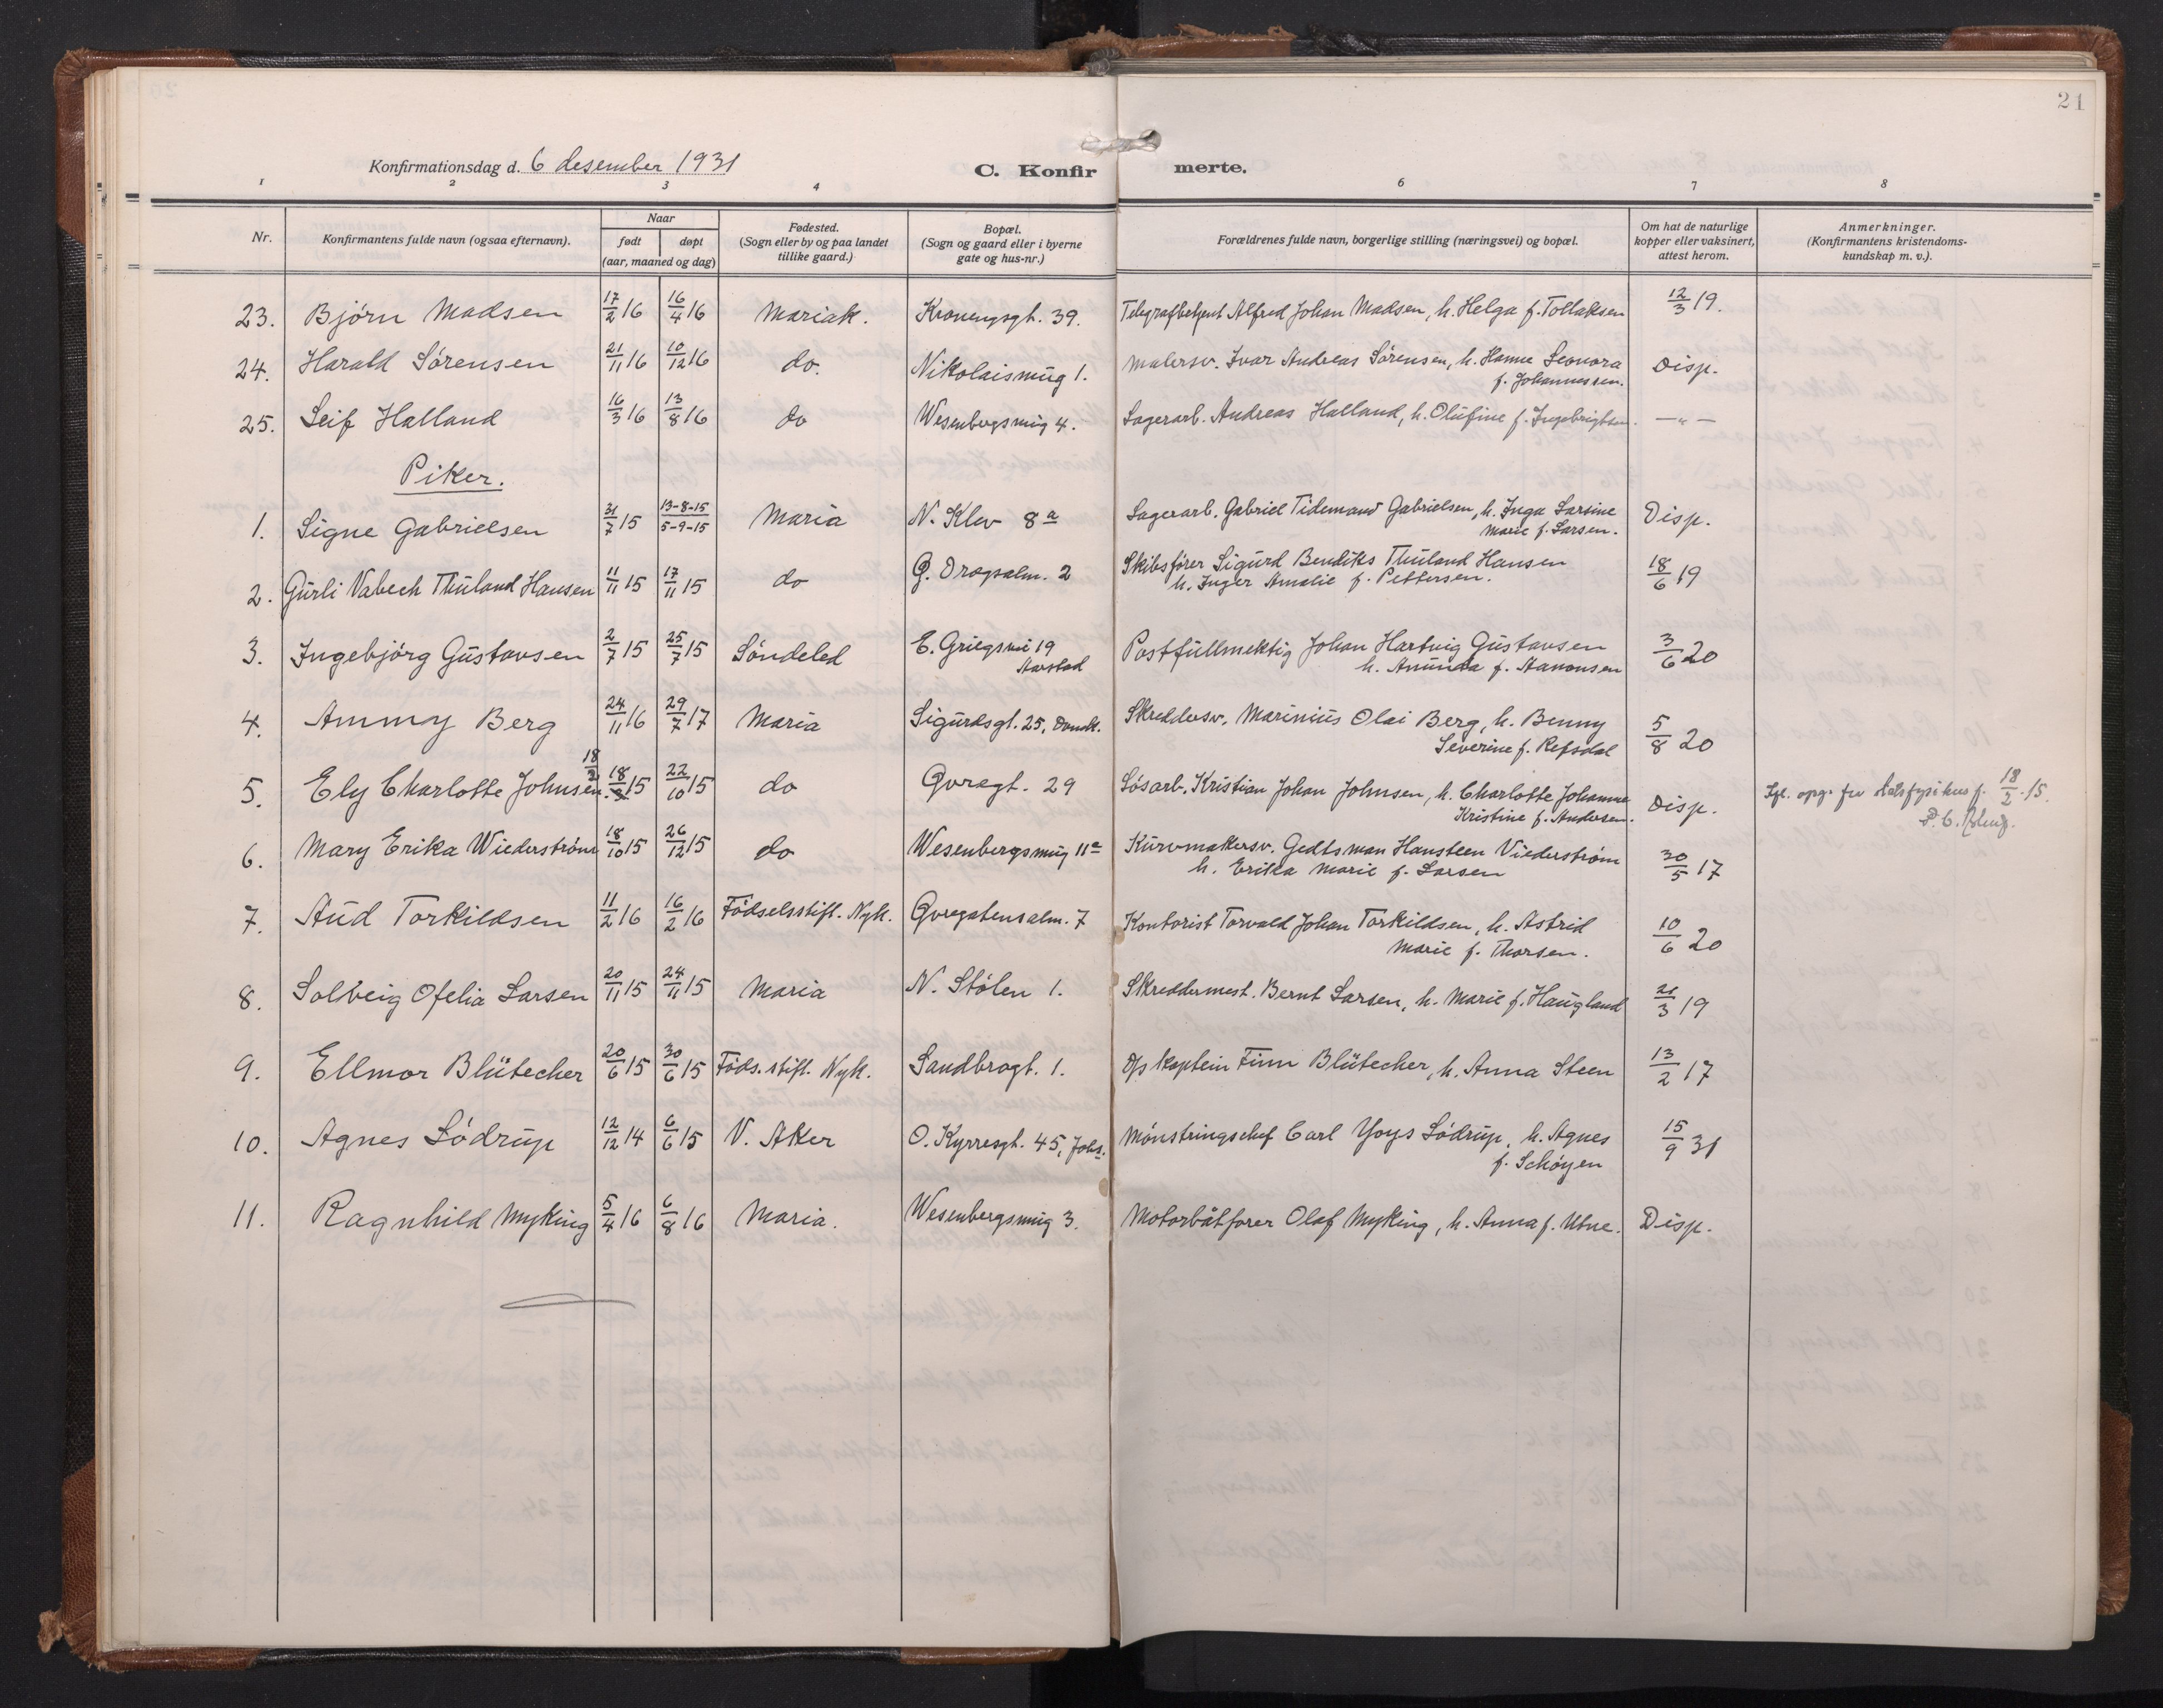 21
Konfirmationsdag d. 6 desember 1931
C. Konfirmerte.
1 2 3 4 6 7 8
Nr. Konfirmantens fulde navn (ogsaa efternavn). Naar født døpt (aar, maaned og dag) Fødested. (Sogn eller by og paa landet tillike gaard.) Bopæl. (Sogn og gaard eller i byerne gate og hus-nr.) Forældrenes fulde navn, borgerlige stilling (næringsvei) og bopæl. Om hat de naturlige kopper eller vaksinert, attest herom. Anmerkninger. (Konfirmantens kristendomskundskap m. v.).
23. Bjørn Madsen 17/2 16 16/4 16 Mariak. Kronengsgt. 39. Telegrafbetjent Alfred Johan Madsen, h. Helga f. Tollaksen 12/3 19.
24. Harald Sørensen 21/11 16 10/12 16 do. Nikolaismug 1. Malersv. Ivar Andreas Sørensen, h. Hanne Leonora
f. Johannessen. Disp.
25. Leif Halland 16/3 16 13/8 16 do Wesenbergsmug 4. Lagerarb. Andreas Halland, h. Olufine f. Ingebrigtsen. —"—
Piker.
1. Signe Gabrielsen 31/7 15 13-8-15 5-9-15 Maria N. Klev 8a Lagerarb. Gabriel Tidemand Gabrielsen, h. Inga Larsine
Marie f. Larsen. Disp.
2. Gurli Vabech Thuland Hansen 11/11 15 17/11 15 do G. Dregsalm. 2 Skibsfører Sigurd Bendiks Thuland Hansen
h. Inger Amalie f. Pettersen. 18/6 19
3. Ingebjørg Gustavsen 2/7 15 25/7 15 Søndeled E. Griegsvei 19
Aarstad Postfullmektig Johan Hartvig Gustavsen
h. Anunda f. Aanonsen 3/6 20
4. Ammy Berg 24/11 16 29/7 17 Maria Sigurdsgt. 25, Domk. Skreddersv. Marinius Olai Berg, h. Benny
Severine f. Refsdal 5/8 20
5. Ely Charlotte Johnsen 18/2 18/8 15 22/10 15 do Øvregt. 29 Løsarb. Kristian Johan Johnsen, h. Charlotte Johanne
Kristine f. Andersen. Disp. opg. fra 18/2 15.
6. Mary Erika Wiederstrøm 18/10 15 26/12 15 do Wesenbergsmug 11a Kurvmakersv. Gedtsman Hansteen Viederstrøm
h. Erika Marie f. Larsen 30/5 17
7. Aud Torkildsen 11/2 16 16/2 16 Fødselsstift. Nyk. Øvregatensalm. 7 Kontorist Torvald Johan Torkildsen, h. Astrid
Marie f. Thorsen. 10/6 20
8. Solveig Ofelia Larsen 20/11 15 24/11 15 Maria N. Stølen 1. Skreddermest. Bernt Larsen, h. Marie f. Haugland 21/3 19
9. Ellmor Blütecher 20/6 15 30/6 15 Føds. stift. Nyk. Sandbrogt. 1. D/s kaptein Finn Blütecher, h. Anna Steen 13/2 17
10. Agnes Lødrup 12/12 14 6/6 15 V. Aker O. Kyrresgt. 45, Johs. Mønstringschef Carl Yoys Lødrup, h. Agnes
f. Schøyen 15/9 31
11. Ragnhild Myking 5/4 16 6/8 16 Maria. Wesenbergsmug 3. Motorbåtfører Olaf Myking, h. Anna f. Utne. Disp.